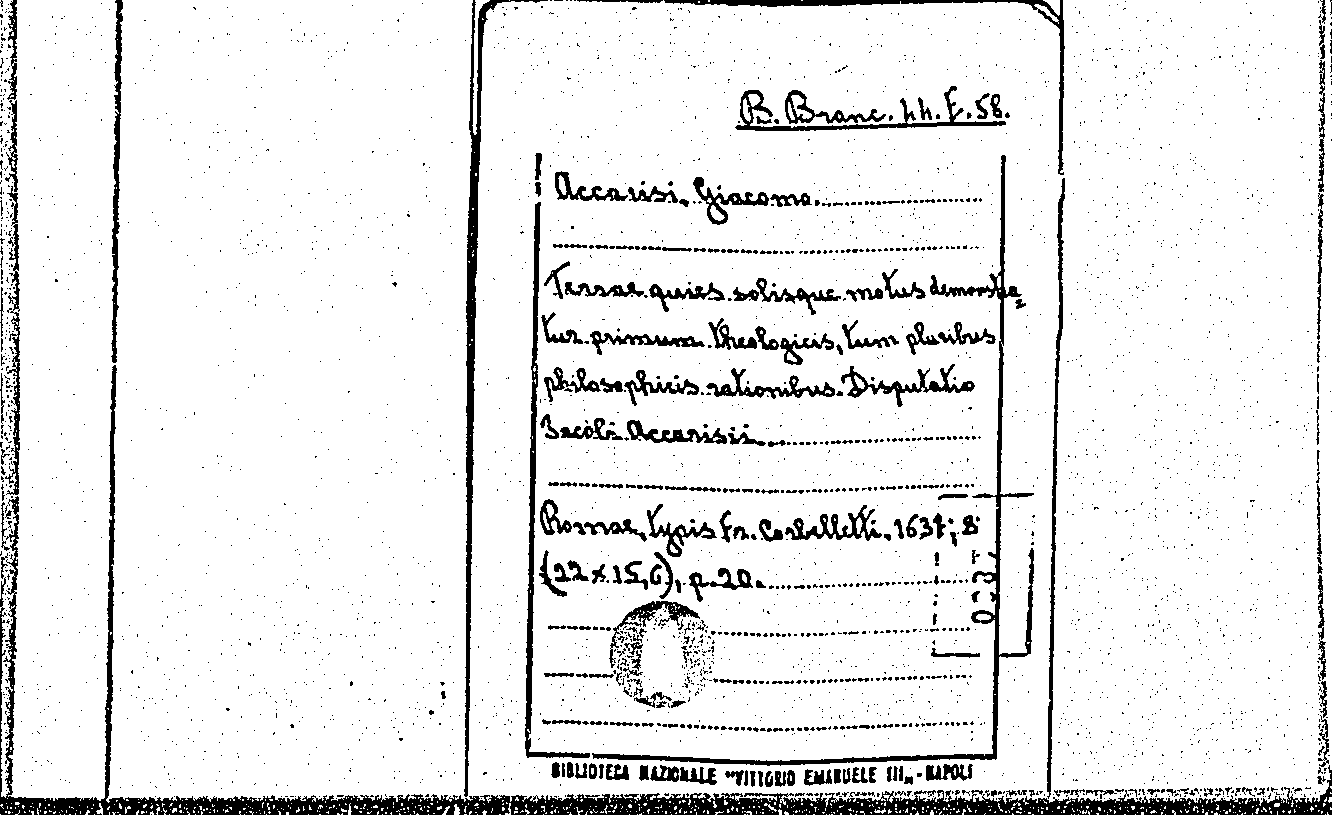 B. Branc. 44. E. 58.
Accarisi, Giacomo.
Terrae quies solisque motus demonstra=
tur primum theologicis, tum pluribus
philosophicis rationibus. Disputatio
Jacobi Accarisii.
Romae, typis Fr. Corbelletti, 1637; 8°
(22 x 15,6), p. 20.
0337
BIBLIOTECA NAZIONALE "VITTORIO EMANUELE III„ - NAPOLI